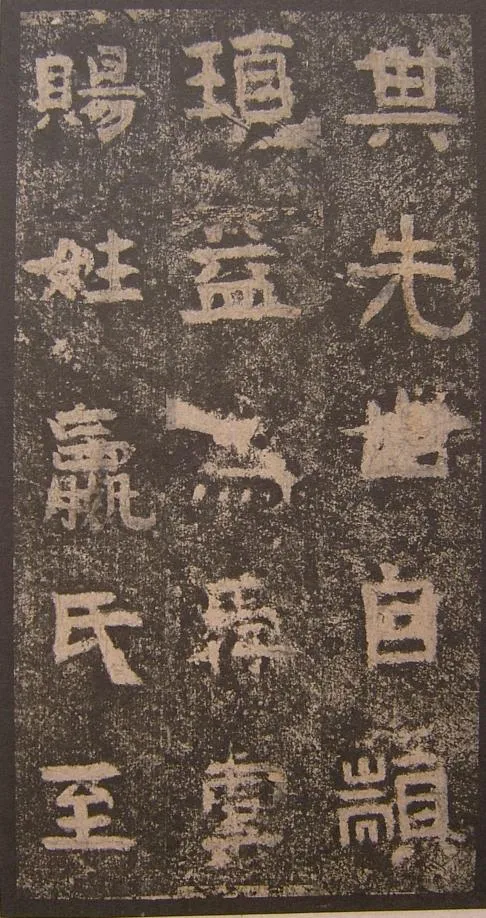 其先世自顓
頊益為舜掌
賜姓嬴氏至